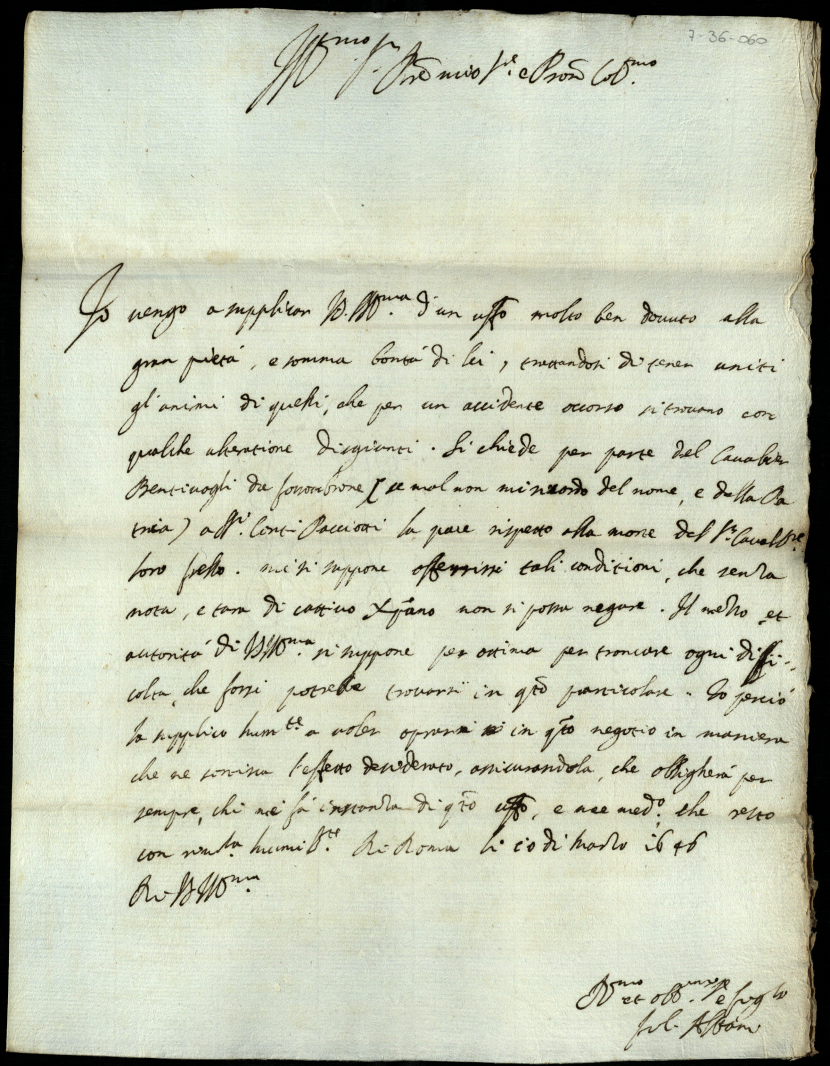 7-36-060
Ill.mo S.r Prōn mio S.re e Prōn Col.mo
Io vengo a supplicar V.S. Ill.ma d'un uff.o molto ben dovuto alla
gran pietà, e somma bontà di lei, trattandosi di tener uniti
gl'animi di quelli, che per un accidente occorso si trovano con
qualche alteratione disgiunti. Si chiede per parte del Cavalier
Bentivogli da fossombrone (se mal non mi ricordo del nome, e della Pa
tria) a SS.ri Conti Pacciotti la pace rispetto alla morte del S.r Caval.re
loro frello. mi si suppone offerirsi tali conditioni, che senza
nota, e tara di cattivo Xp̄ano non si possa negare. Il mezzo et
autorità di V.S. Ill.ma si suppone per ottima per troncare ogni diffi-
coltà, che forsi potrebbe trovarsi in q̄to particolare. Io perciò
la supplico hum.te a voler oprarsi in q̄to negotio in maniera
che ne sortisca l'effetto desiderato, assicurandola, che obligherà per
sempre, chi mi fà instanza di q̄to uff.o, e me med.o che resto
con humil.te Di Roma li io di Marzo 1646
Di V.S. Ill.ma
et obb. figlo
Albani